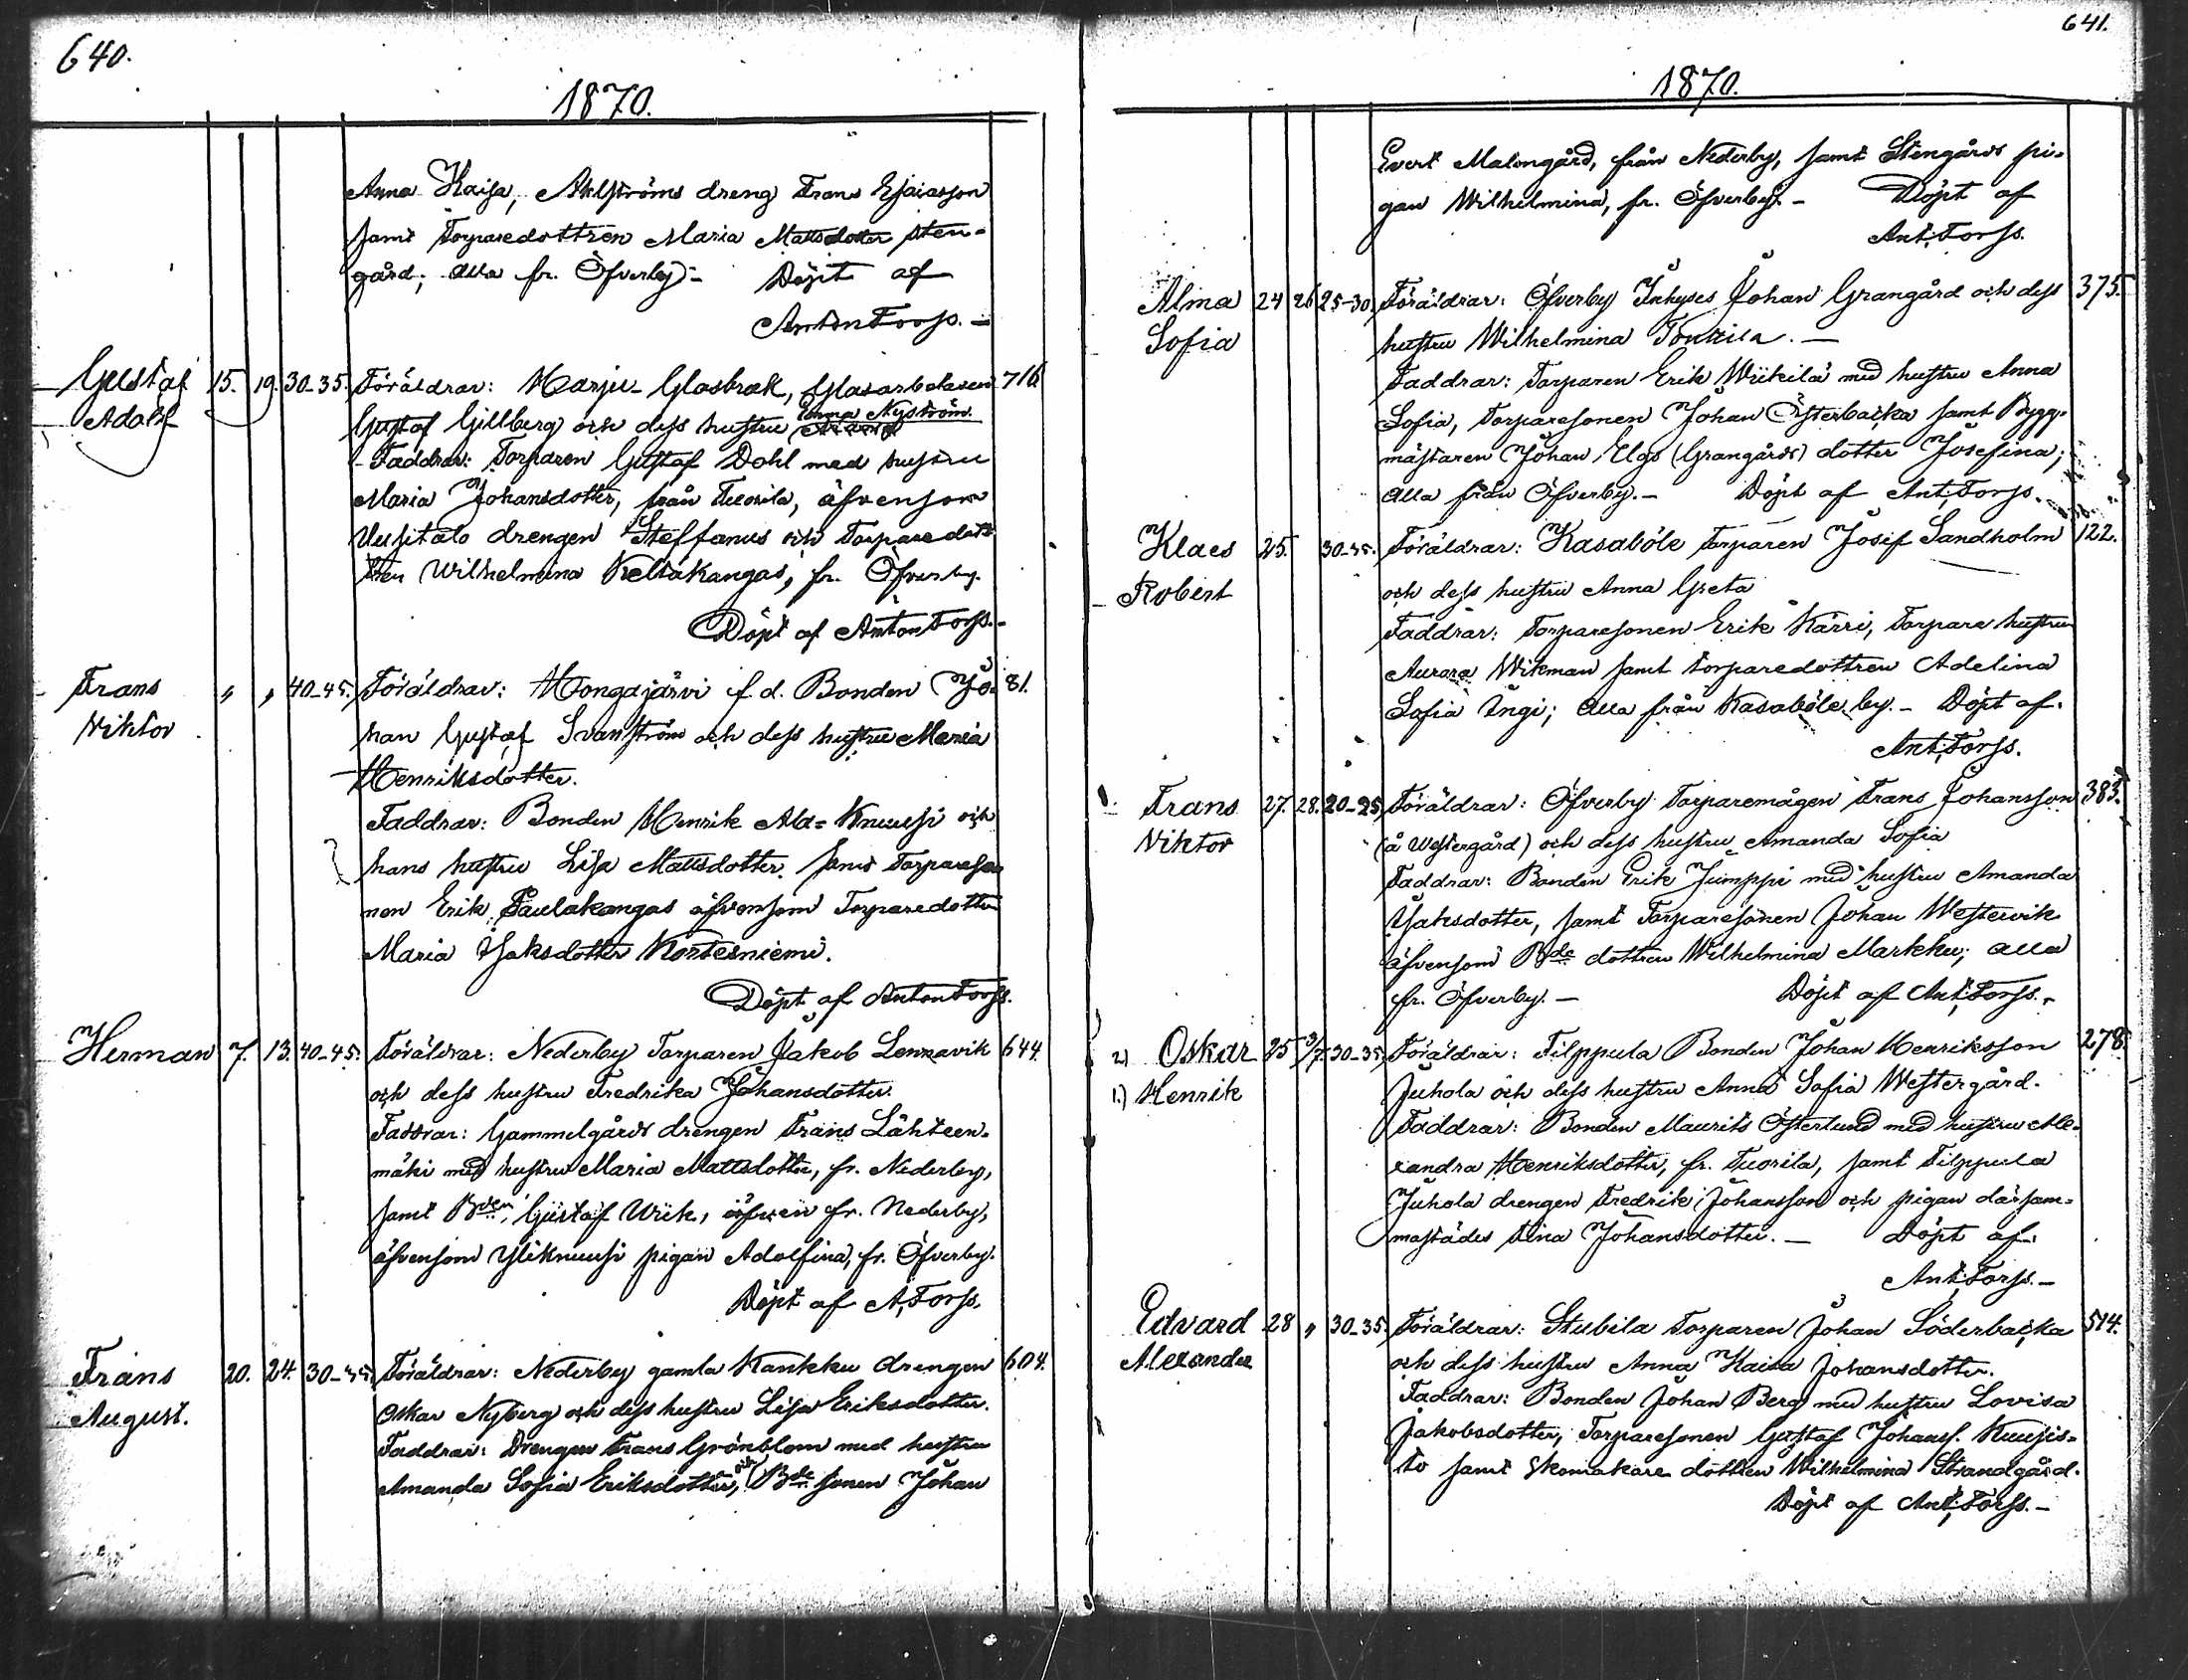 640.
1870.
Anna Kaisa, Ahlströms dreng Frans Esaiasson
samt Torparedottren Maria Mattsdotter Sten-
gård; alla fr. Öfverby.- Döpt af
Anton Forss. -
Gustaf 15. 19. 30-35. Föräldrar: Harju Glasbruk, Glasarbetaren 716
Adolf Gustaf Gillberg och dess hustru Emma Nyström
Faddrar: Torparen Gustaf Dahl med hustru
Maria Johansdotter, från Tuorila, äfvensom
Uusitalo drengen Steffanus och Torparedot-
tren Wilhelmina Keltakangas, fr. Öfverby.
Döpt af Anton Forss.-
Frans " " 40-45. Föräldrar: Hongajärvi f.d. Bonden Jo- 81.
Viktor han Gustaf Svanström och dess hustru Maria
Henriksdotter.
Faddrar: Bonden Henrik Ala-Knuusi och
hans hustru Lisa Mattsdotter, samt Torpareso-
nen Erik Paulakangas äfvensom Torparedottren
Maria Isaksdotter Kortesniemi.
Döpt af Anton Forss.
Herman 7. 13. 40-45. Föräldrar: Nederby Torparen Jakob Lennavik 644.
och dess hustru Fredrika Johansdotter.
Faddrar: Gammelgårds drengen Frans Lähteen-
mäki med hustru Maria Mattsdotter, fr. Nederby,
samt Bden Gustaf Wiik, äfven fr. Nederby,
äfvensom Yliknuusi pigan Adolfina, fr. Öfverby.
Döpt af A. Forss.
Frans 20. 24. 30-35. Föräldrar: Nederby gamla Kankku drengen 604.
August. Oskar Nyberg och dess hustru Lisa Eriksdotter.
Faddrar: Drengen Frans Grönblom med hustru
Amanda Sofia Eriksdotter, och Bde sonen Johan
641.
1870.
Evert Malongård, från Nederby, samt Stengårds pi-
gan Wilhelmina, fr. Öfverby. - Döpt af
Ant. Forss.
Alma 24 26 25-30. Föräldrar: Öfverby Inhyses Johan Grangård och dess 375.
Sofia hustru Wilhelmina Tonttila. -
Faddrar: Torparen Erik Wiikilä med hustru Anna
Sofia, Torparesonen Johan Österbacka samt Bygg-
mästaren Johan Elgs (Grangårds) dotter Josefina;
alla från Öfverby. - Döpt af Ant. Forss.
Klaes 25. 30-35. Föräldrar: Kasaböle Torparen Josif Sandholm 122.
Robert och dess hustru Anna Greta
Faddrar: Torparesonen Erik Karri, Torpare hustrun
Aurora Wikman samt torparedottren Adelina
Sofia Ingi; alla från Kasaböle by. - Döpt af
Ant. Forss.
Frans 27. 28. 20-25. Föräldrar: Öfverby Torparemågen Frans Johansson 383.
Viktor (å Westergård) och dess hustru Amanda Sofia
Faddrar: Bonden Erik Jumppi med hustru Amanda
Isaksdotter, samt Torparesonen Johan Westervik
äfvensom Bde dottren Wilhelmina Markku; alla
fr. Öfverby. - Döpt af Ant. Forss. -
2) Oskar 25 3/7 30-35. Föräldrar: Filppula Bonden Johan Henriksson 278.
1.) Henrik Juhola och dess hustru Anna Sofia Westergård.
Faddrar: Bonden Maurits Österlund med hustru Ale-
xandra Henriksdotter, fr. Tuorila, samt Filppula
Juhola drengen Fredrik Johansson och pigan därsam-
mastädes Stina Johansdotter. - Döpt af
Ant. Forss. -
Edvard 28 " 30-35. Föräldrar: Stubila Torparen Johan Söderbacka 514.
Alexander och dess hustru Anna Kaisa Johansdotter.
Faddrar: Bonden Johan Berg med hustru Lovisa
Jakobsdotter, Torparesonen Gustaf Johanss. Kuusis-
to samt Skomakare dottren Wilhelmina Strandgård.
Döpt af Ant. Forss. -